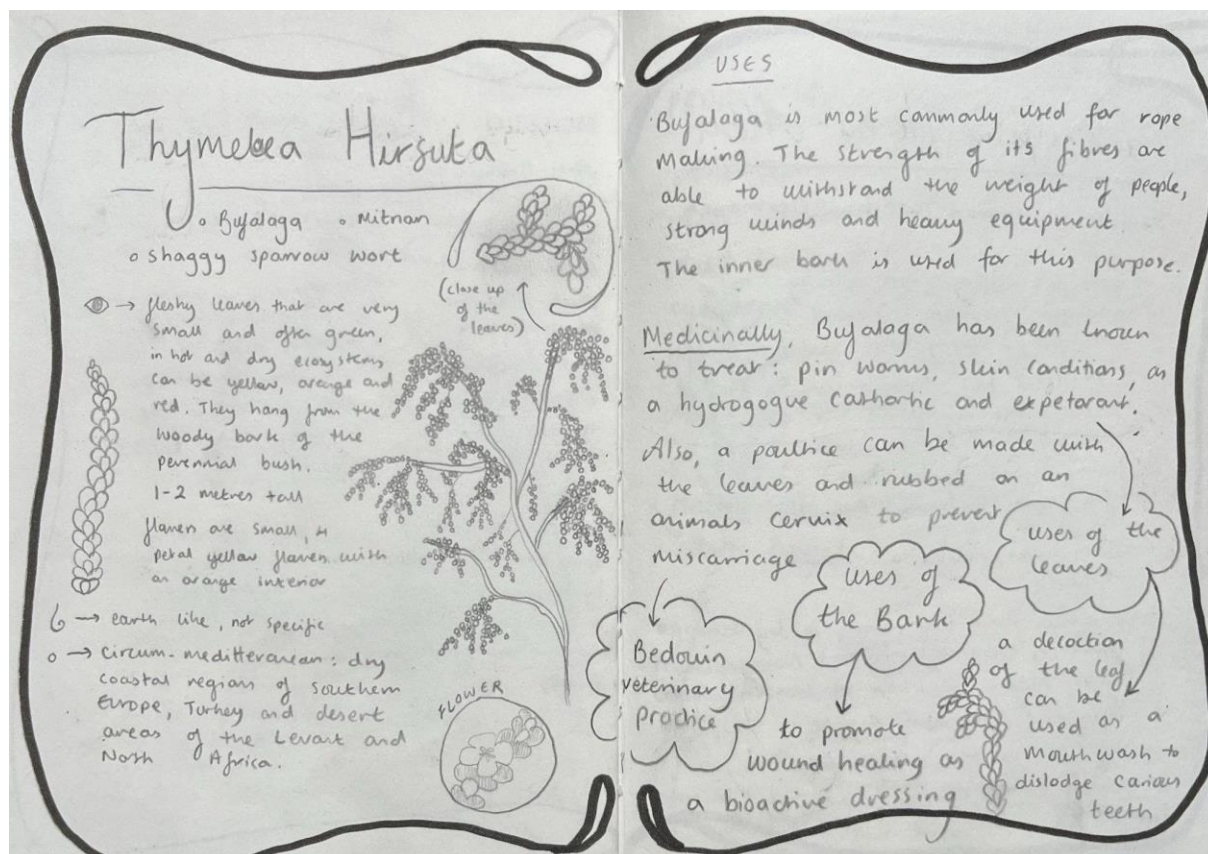 Thymelea Hirsuta
Bufalaga Mitnan
shaggy sparrow wort
(close up
of the
leaves)
→ fleshy leaves that are very
small and often green,
in hot and dry ecosystems
can be yellow, orange and
red. They hang from the
woody bark of the
perennial bush.
1-2 metres tall
flower are small, 4
petal yellow flower with
an orange interior
→ earth like, not specific
→ circum-meditteranean: dry
coastal regions of southern
Europe, Turkey and desert
areas of the Levant and
North Africa.
FLOWER
USES
Bufalaga is most commonly used for rope
making. The strength of its fibres are
able to withstand the weight of people,
strong winds and heavy equipment
The inner bark is used for this purpose.
Medicinally, Bufalaga has been known
to treat: pin worms, skin conditions, as
a hydrogogue cathartic and expetorant.
Also, a poultice can be made with
the leaves and rubbed on an
animals cervix to prevent
miscarriage
Bedouin
veterinary
practice
uses of
the Bark
to promote
wound healing as
a bioactive dressing
uses of the
leaves
a decoction
of the leaf
can be
used as a
mouthwash to
dislodge carious
teeth